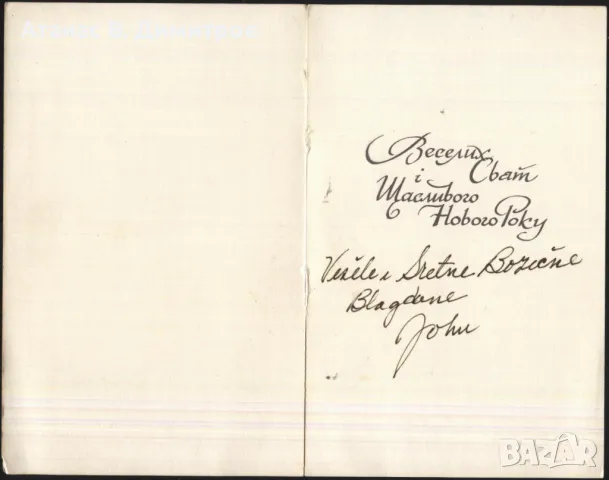 Веселих
Сват
і
Щасливого
Нового Року
Vesele i Sretne Bozicne
Blagdane
John
BAZAR